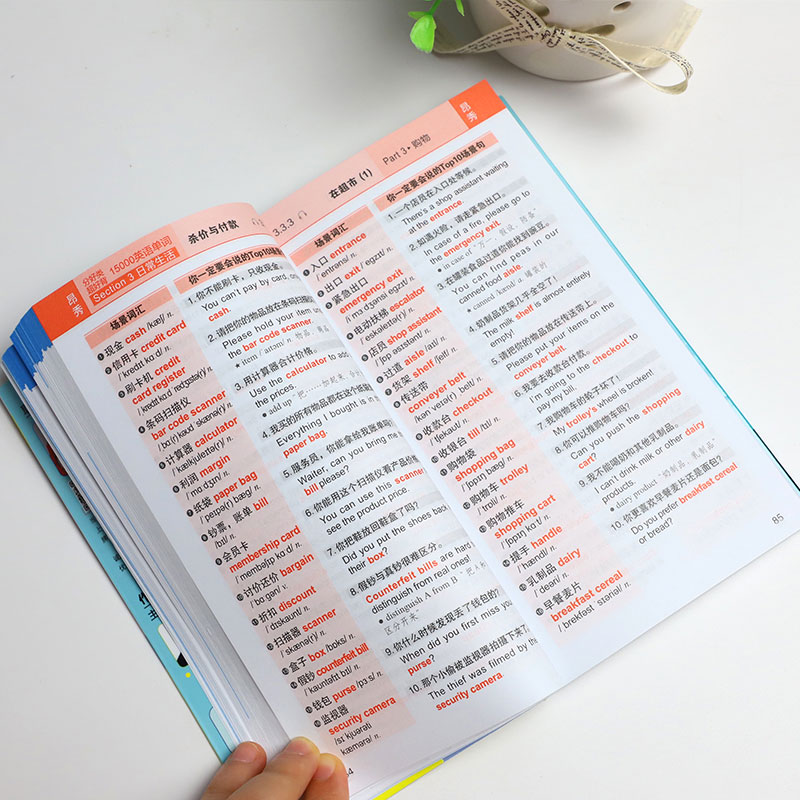 昂秀
分好类
超好背
15000英语单词
Section 3 日常生活
杀价与付款
场景词汇
现金 cash /kæʃ/ n.
信用卡 credit card
/ˈkredɪt kɑːd/ n.
刷卡机 credit
card register
条码扫描仪
bar code scanner
计算器 calculator
/ˈkælkjuleɪtə(r)/ n.
利润 margin
纸袋 paper bag
钞票，账单 bill
/bɪl/ n.
会员卡
membership card
讨价还价 bargain
折扣 discount
/ˈdɪskaunt/ n.
扫描器 scanner
/ˈskænə(r)/ n.
盒子 box /bɒks/ n.
假钞 counterfeit bill
钱包 purse /pɜːs/ n.
监视器
security camera
你一定要会说的Top10场景句
1. 你不能刷卡，只收现金。
You can't pay by card, only
cash.
2. 请把你的物品放在条码扫描
Please hold your item
the bar code scanner.
3. 用计算器合计价格。
Use the calculator to add
the prices.
4. 我买的所有物品都在这个纸
Everything I bought is in
paper bag.
5. 服务员，你能拿给我账单吗
Waiter, can you bring me
bill please?
6. 你能用这个扫描仪看产品价
You can use this scanner
see the product price.
7. 你把鞋放回鞋盒了吗？
Did you put the shoes back
their box?
8. 假钞与真钞很难区分。
Counterfeit bills are hard
distinguish from real ones
distinguish A from B "把A
区分开来"
9. 你什么时候发现丢了钱包的
When did you first miss your
purse?
10. 那个小偷被监视器拍摄下来了
The thief was filmed by the
security camera.
3.3.3
在超市 (1)
Part 3 • 购物
昂秀
场景词汇
入口 entrance
/ˈentrəns/ n.
出口 exit /ˈeksɪt/ n.
紧急出口
emergency exit
电动扶梯 escalator
/ˈeskəleɪtə(r)/ n.
店员 shop assistant
过道 aisle /aɪl/ n.
货架 shelf /ʃelf/ n.
传送带
conveyer belt
收款台 checkout
/ˈtʃekaut/ n.
收银台 till /tɪl/ n.
购物袋
shopping bag
购物车 trolley
/ˈtrɒli/ n.
购物推车
shopping cart
提手 handle
/ˈhændl/ n.
乳制品 dairy
/ˈdeəri/ n.
早餐麦片
breakfast cereal
你一定要会说的Top10场景句
1. 一个店员在入口处等候。
There's a shop assistant waiting
at the entrance.
2. 如遇火险，请走紧急出口。
In case of a fire, please go to
the emergency exit.
in case of "万一，假设，防备"
3. 在罐装食品过道你能找到豌豆。
You can find peas in our
canned food aisle.
4. 奶制品货架几乎全空了！
The milk shelf is almost entirely
empty!
5. 请把你的物品放在传送带上。
Please put your items on the
conveyer belt.
6. 我要去收款台付款。
I'm going to the checkout to
pay my bill.
7. 我购物车的轮子坏了！
My trolley's wheel is broken!
8. 你可以推购物车吗？
Can you push the shopping
cart?
9. 我不能喝奶和其他乳制品。
I can't drink milk or other dairy
products.
dairy product "奶制品，乳制品"
10. 你更喜欢早餐麦片还是面包？
Do you prefer breakfast cereal
or bread?
85